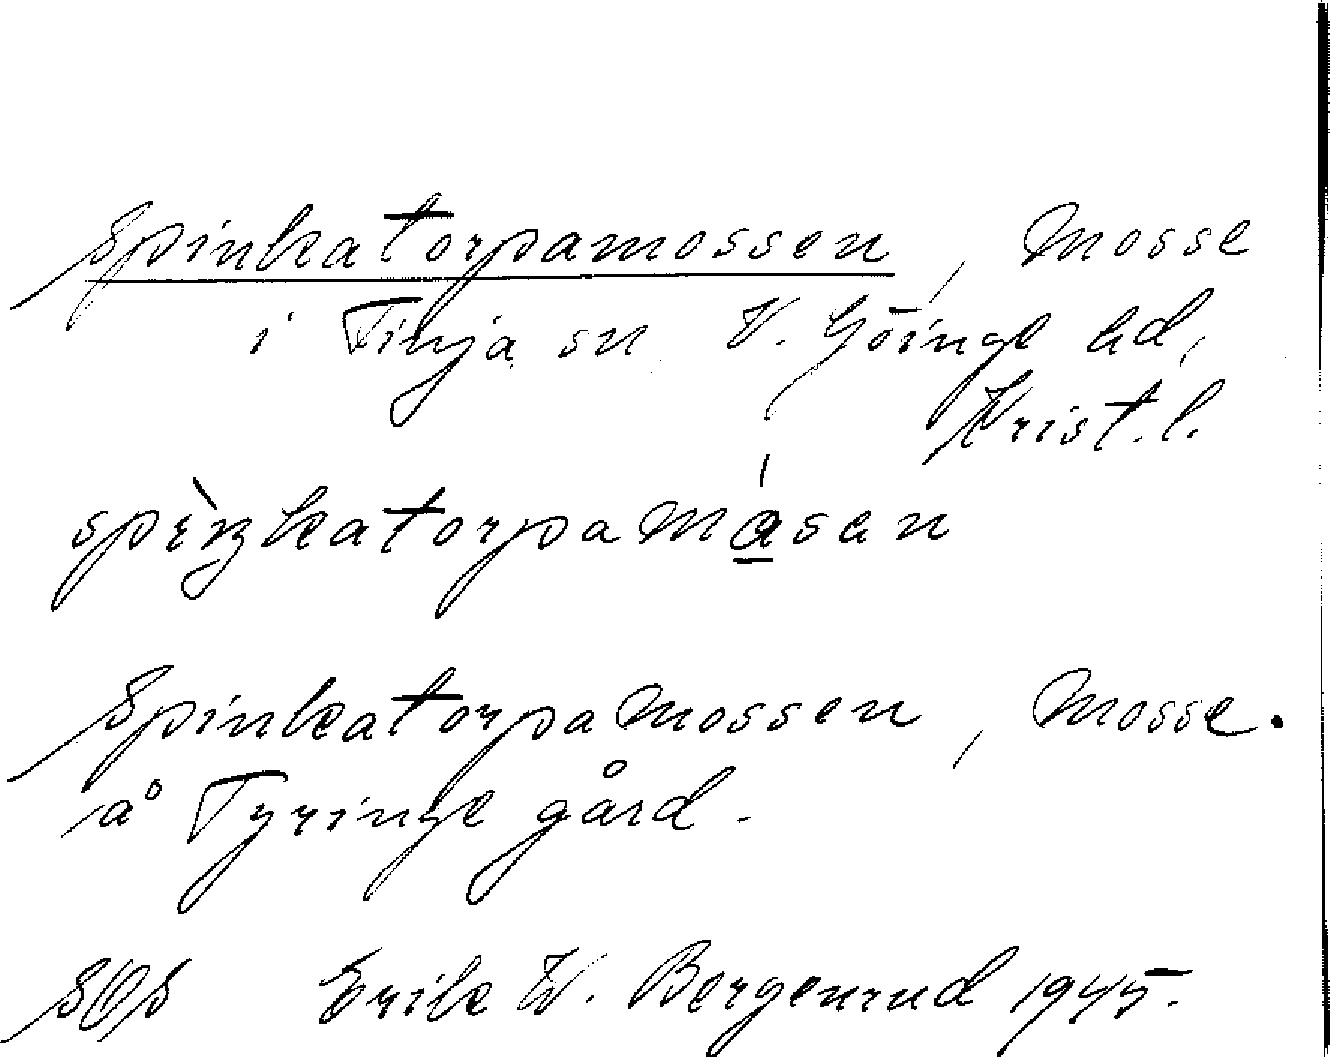 Spinkatorpamossen, Mosse
i Finja sn V. Göinge hd,
Krist. l.
spìŋkatorpamásan
Spinkatorpamossen, Mosse.
å Tyringe gård.
SOS Erik W. Bergenrud 1945.